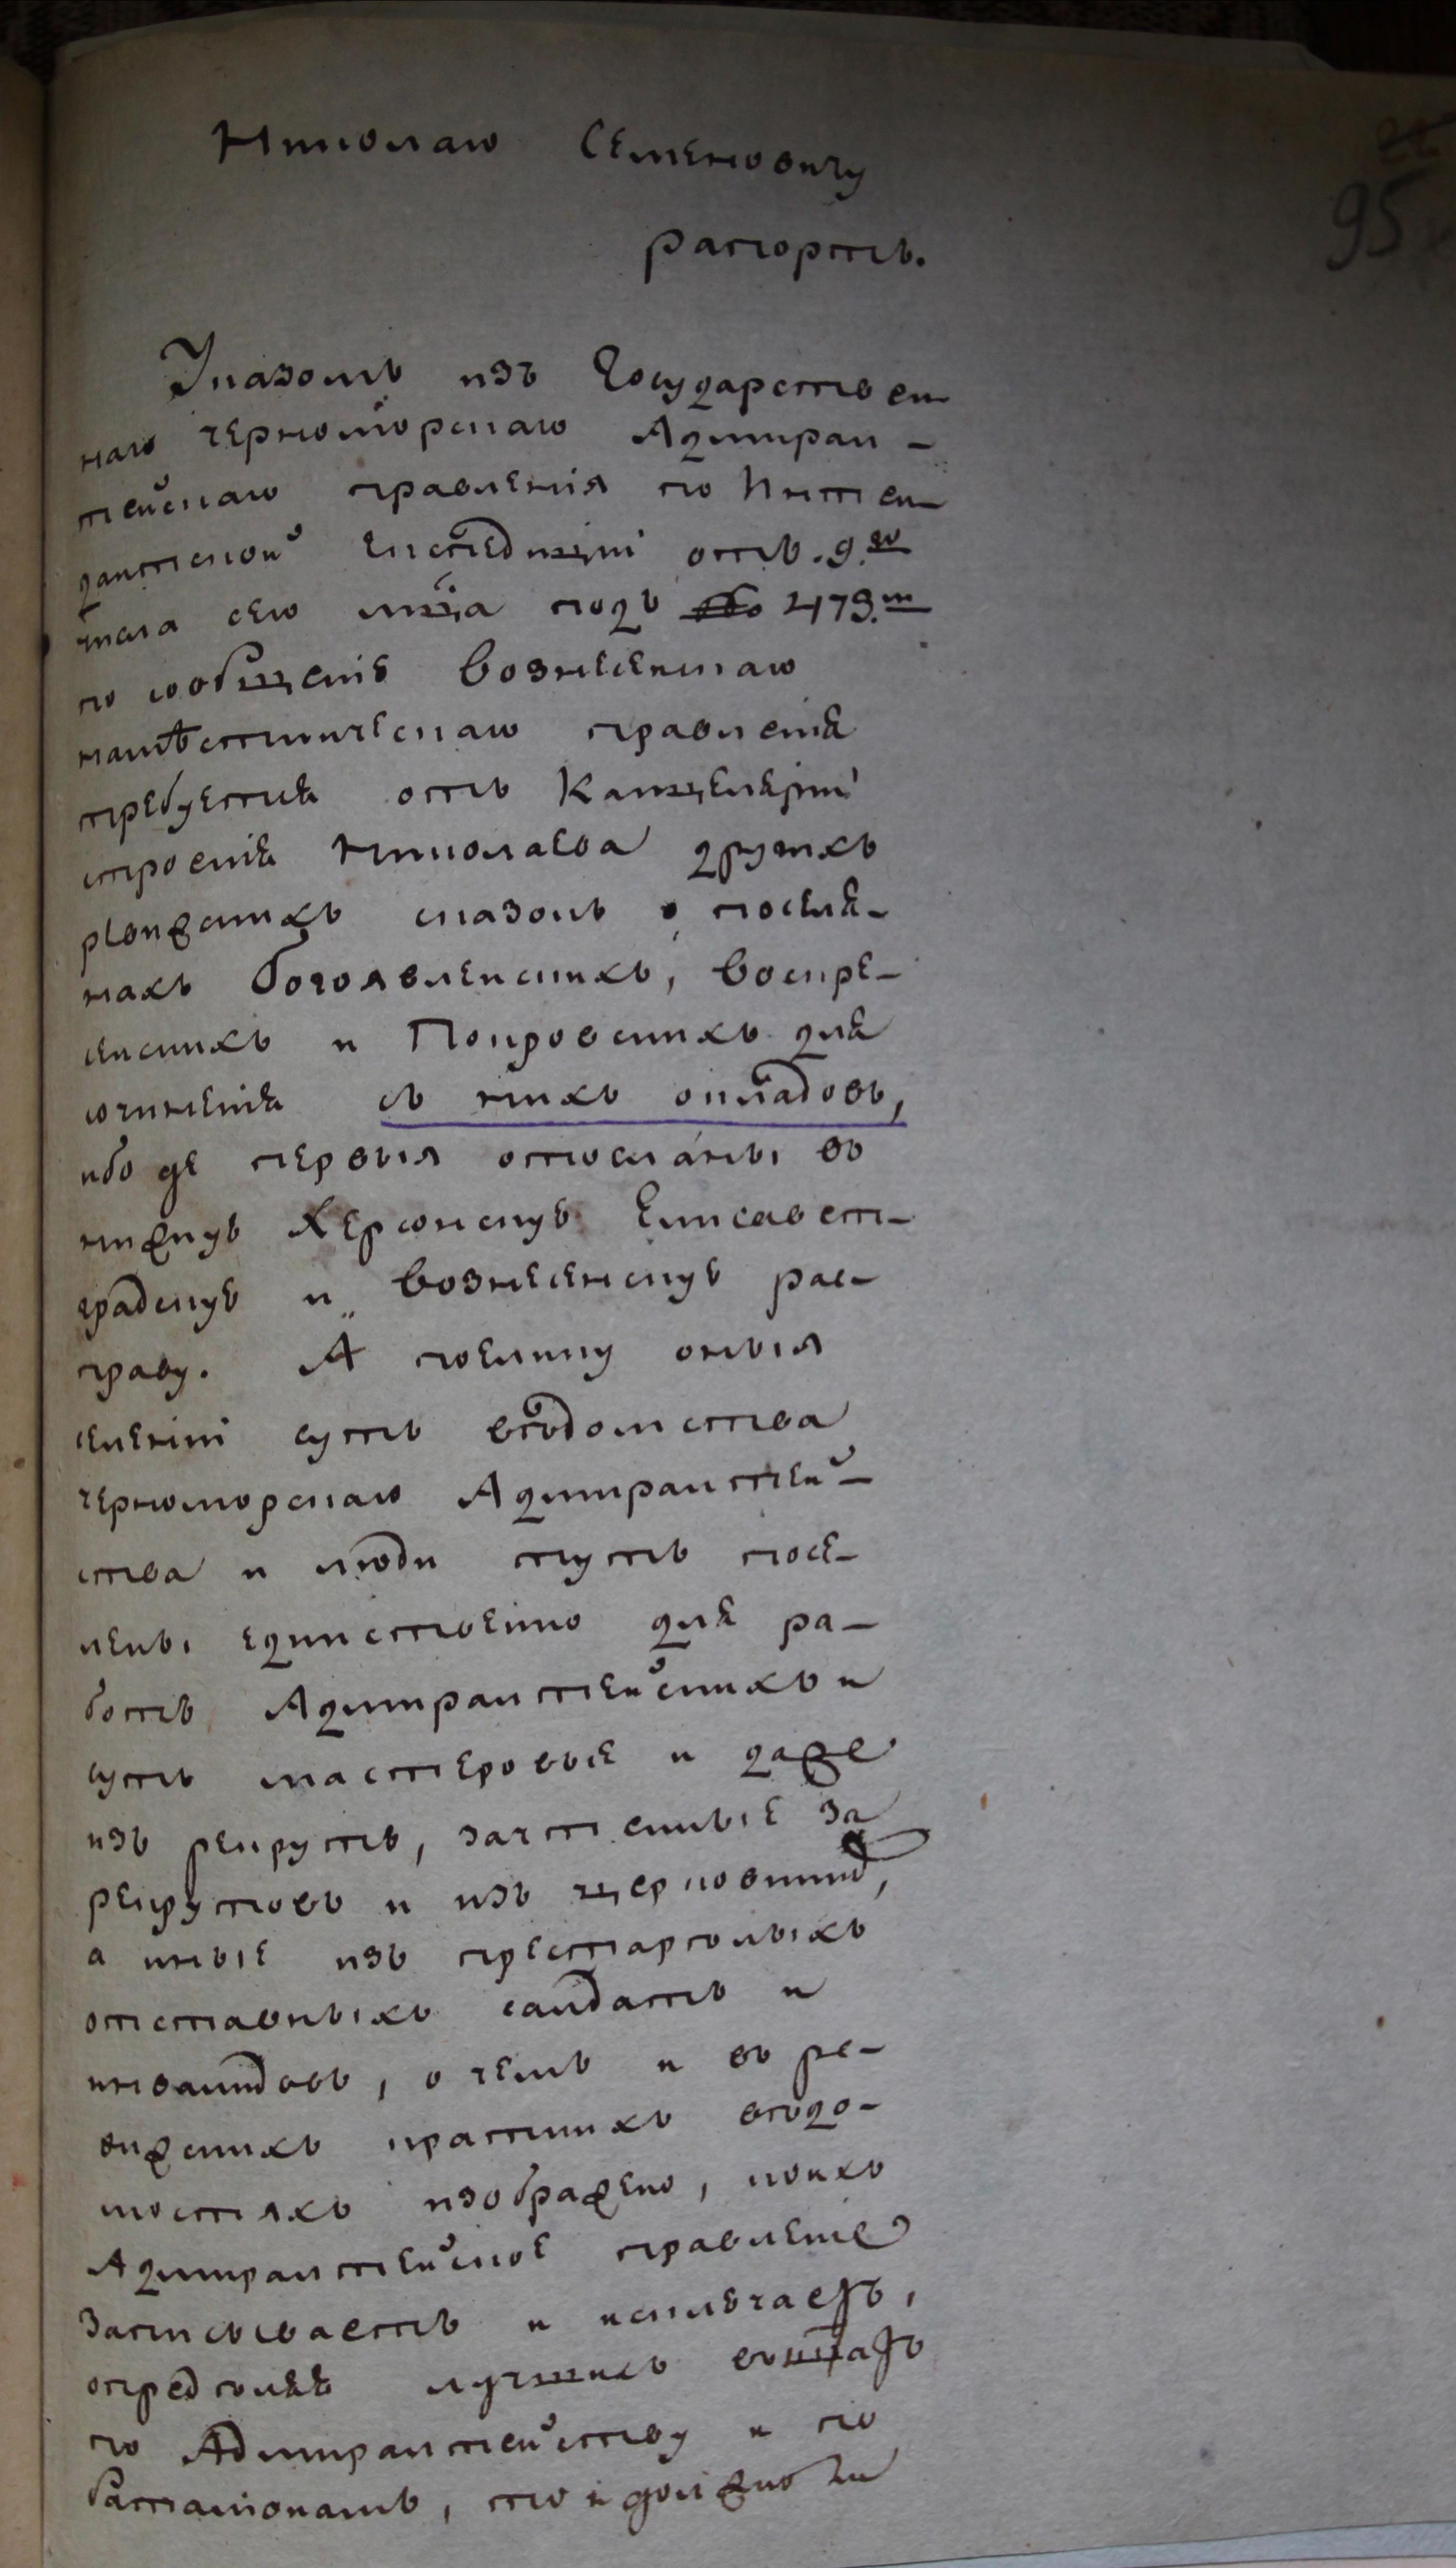 Николаю Семеновичу
95
рапортъ.
Указомъ изъ Государствен
наго черноморскаго Адмирал-
тейскаго правленія по Интен
дантской експедиціи отъ 9.го
числа сего мца подъ № 2479.м
по сообщеніе Вознесенскаго
наместническаго правленія
требуется отъ Канцеляріи
строенія Николаева другихъ
ревижскихъ сказокъ о поселя-
нахъ Богоявленскихъ, Воскре-
сенскихъ и Покровскихъ для
сочиненія съ нихъ окладовъ,
ибо де первыя отосланы въ
нижнуѣ Херсонскуѣ Елисавет-
градскуѣ и Вознесенскуѣ рас-
праву. А поелику оныя
селеніи суть ведомства
черноморскаго Адмиралтей-
ства и люди тутъ посе-
лены единственно для ра-
ботъ Адмиралтейскихъ и
суть мастеровые и даже
изъ рекрутъ, зачтенные за
рекрутовъ и изъ церковник,
а иные изъ престарѣлыхъ
отставныхъ салдатъ и
инвалидовъ, о чемъ и въ ре-
вижскихъ краткихъ ведо-
мостяхъ изображено, коихъ
Адмиралтейское правленіе
записываетъ и исключаетъ,
определяя лучшихъ въ штатъ
по Адмиралтейству и по
баталіонамъ, то и должно ли